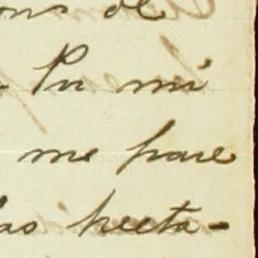 ons de
Pu mi
me pare
las hecta-